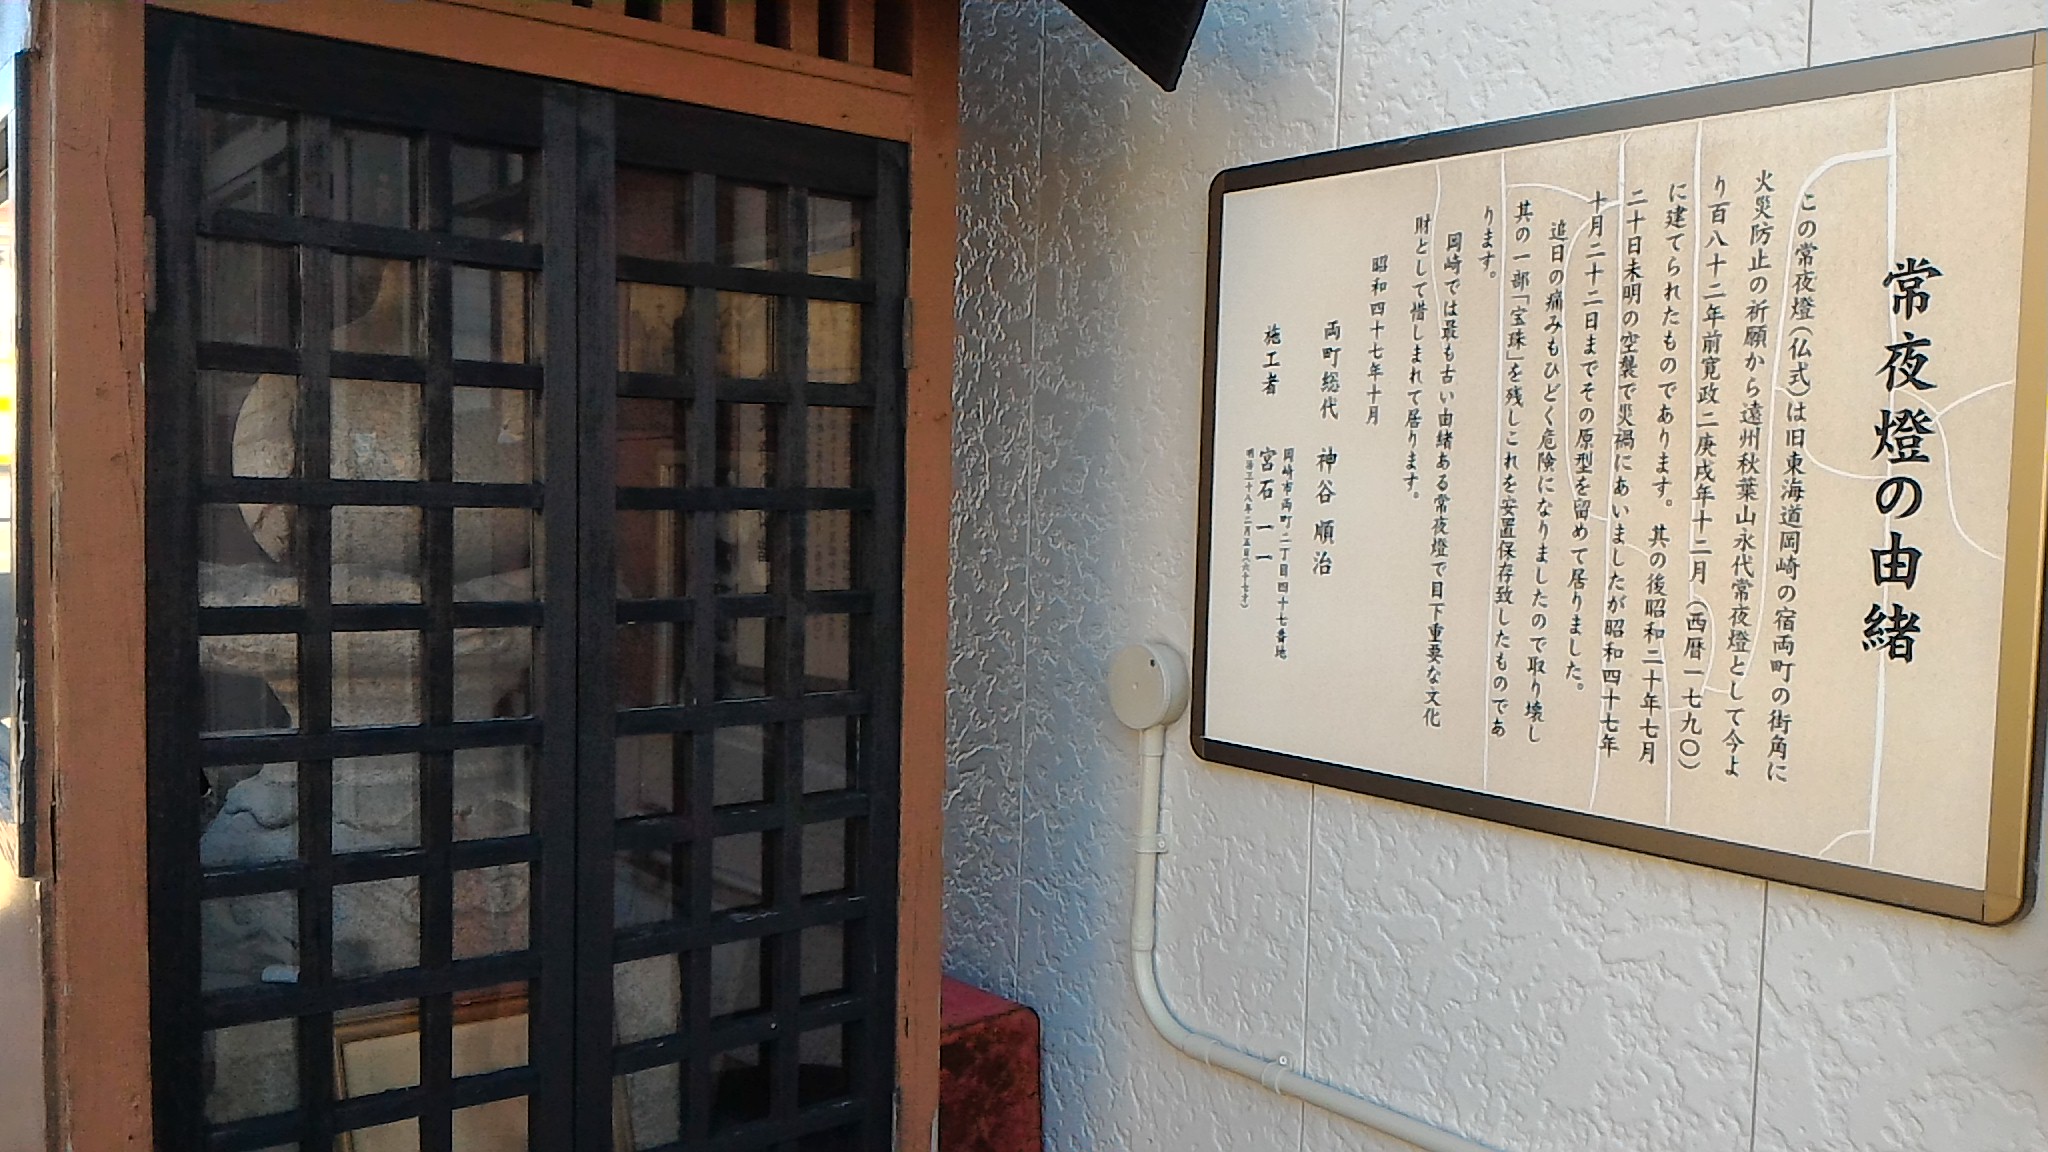 常夜燈の由緒
この常夜燈(仏式)は旧東海道岡崎の宿両町の街角に
火災防止の祈願から遠州秋葉山永代常夜燈として今よ
り百八十二年前寛政二庚戌年十二月(西暦一七九〇)
に建てられたものであります。其の後昭和二十年七月
二十日未明の空襲で災禍にあいましたが昭和四十七年
十月二十二日までその原型を留めて居りました。
追日の痛みもひどく危険になりましたので取り壊し
其の一部「宝珠」を残しこれを安置保存致したものであ
ります。
岡崎では最も古い由緒ある常夜燈で目下重要な文化
財として惜しまれて居ります。
昭和四十七年十月
両町総代 神谷順治
岡崎市両町二丁目四十七番地
施工者 宮石一一
明治三十八年二月五日(六十七才)